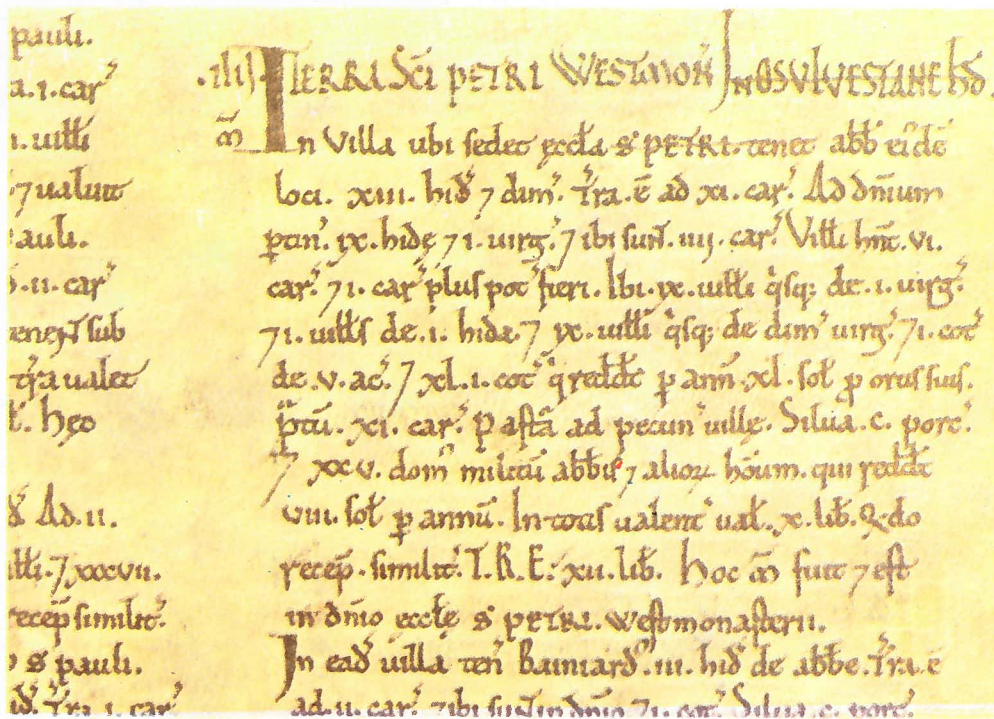 pauli.
a. i. car̃
ii. uilłi
⁊ ualuit
auli.
ii. car̃
teneñt sub
tr̃a ualet
hęc
Ad. ii.
uilłi. ⁊ xxxvii.
recep̃ similit̃.
s̃ pauli.
Tr̃a. i. car̃
.iiii. TERRA SC̃I PETRI WESTMON̄ IN OSVLVESTANE HD̃.
m̃ In Villa ubi sedet ęccła s̃ PETRI. tenet abb̃ eiđẽ
loci. xiii. hiđ ⁊ dim̃. Tr̃a. ẽ ad xi. car̃. Ad dñium
ptiñ. ix. hidę ⁊ i. uirg̃. ⁊ ibi suñt. iiij. car̃. Vilłi hñt. vi.
car̃. ⁊ i. car̃ plus pot̃ fieri. Ibi. ix. uilłi q̃sq; de. i. uirg̃.
⁊ i. uilłs de. i. hida. ⁊ ix. uilłi q̃sq; de dim̃ uirg̃. ⁊ i. cot̃
de. v. ac̃. ⁊ xl. i. cot̃ q̃ redđt p̱ anñ. xl. soł p̱ ortis suis.
p̃tũ. xi. car̃. Pastã ad pecuñ uillę. Silua. c. porc̃.
⁊ xxv. dom̃ militũ abb̃is ⁊ alioꝝ hõum. qui redđt
viii. soł p̱ annũ. In totis ualent̃ uał. x. lib̃. Q̃do
recep̃. similit̃. T. R. E. xii. lib̃. Hoc m̃ fuit ⁊ est
in dñio ęccłę s̃ PETRI. westmonasterii.
In eađ uilla teñ Bainiard̃. iii. hiđ de abb̃e. Tr̃a. ẽ
ad. ii. car̃. ⁊ ibi suñt in dñio ⁊ i. cot̃. Silua. c. porc̃.